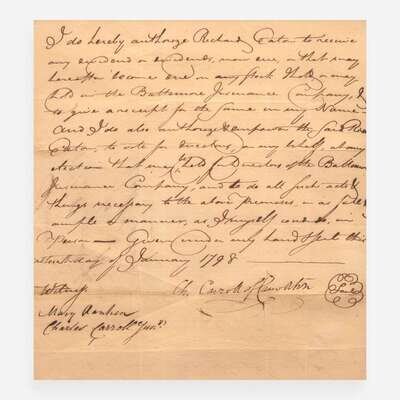 I do hereby authorize Richard Caton to receive
any dividend or dividends, now due, or that may
hereafter become due on any stock that I may
hold in the Baltimore Insurance Company, &
to give a receipt for the same in my Name—
And I do also authorize & empower the said
Caton, to vote for directors, in my behalf, at any
election that may be held for Directors of the
Insurance Company, and to do all such acts &
things necessary to the above premises, in as full &
ample a manner, as I myself could do, in
Person — Given under my hand & seal this
day of January 1798
Witness Ch. Carroll of Carrollton Seal
Mary
Charles Carroll Junr.